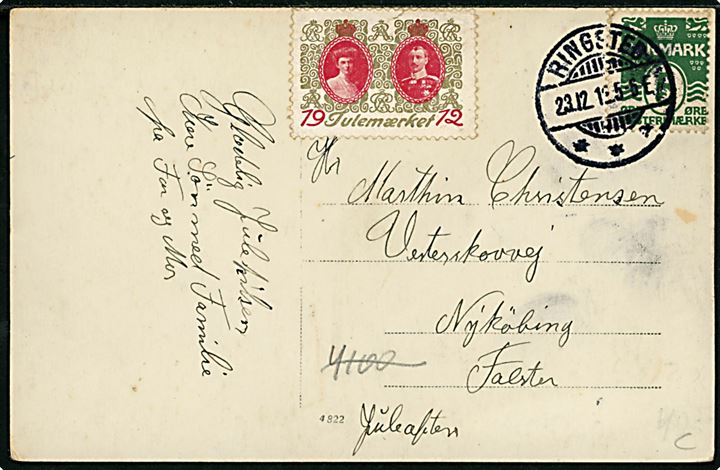 19 Julemærket 12
RINGSTED
23.12.12.5-6E.
DANMARK
ØRE
Glædelig Julehilsen
Kære Søn med Familie
fra Far og Mor
Hr
Marthin Christensen
Vesterskovvej
Nykøbing
Falster
4100
4822
Juleaften
C